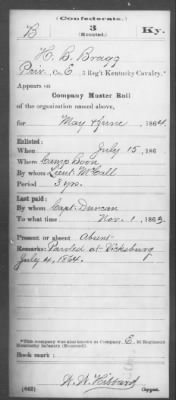 Confederate.
B 3 Ky.
(Mounted.)
H. B. Bragg
Priv., Co. E, 3 Reg't Kentucky Cavalry.*
Appears on
Company Muster Roll
of the organization named above,
for May & June, 1864.
Enlisted:
When July 15, 186
Where Camp
By whom Lieut. McCall
Period 3 yrs.
Last paid:
By whom Capt. Duncan
To what time Nov. 1, 1863.
Present or absent Absent
Remarks: Paroled at Vicksburg
July 4, 1864.
*This company was also known as Company E, 3d Regiment
Kentucky Infantry (Mounted).
Book mark:
Hibbard
(642) Copyist.